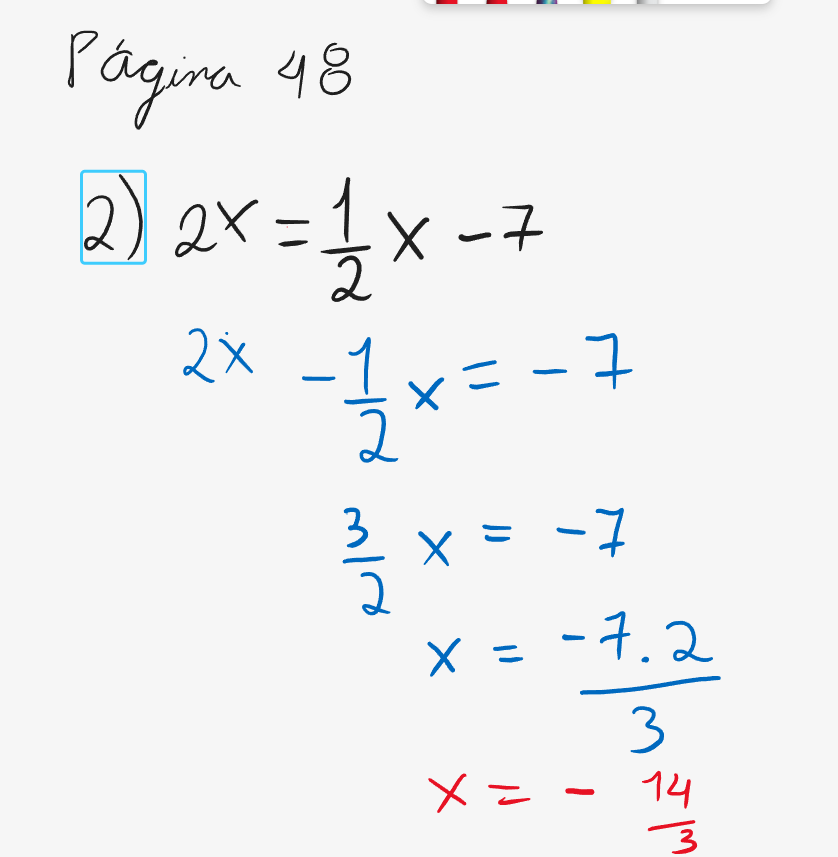 Página 48
2) 2x = 1/2 x - 7
2x - 1/2 x = - 7
3/2 x = - 7
x = - 7 . 2 / 3
x = - 14/3